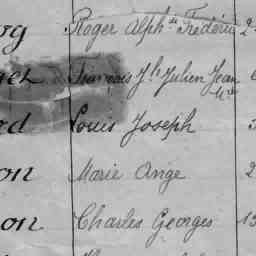 Roger Alph.se Frédéric 2
François J.h Julien Jean
M.ie
Louis Joseph
on Marie Ange 2
on Charles Georges 13